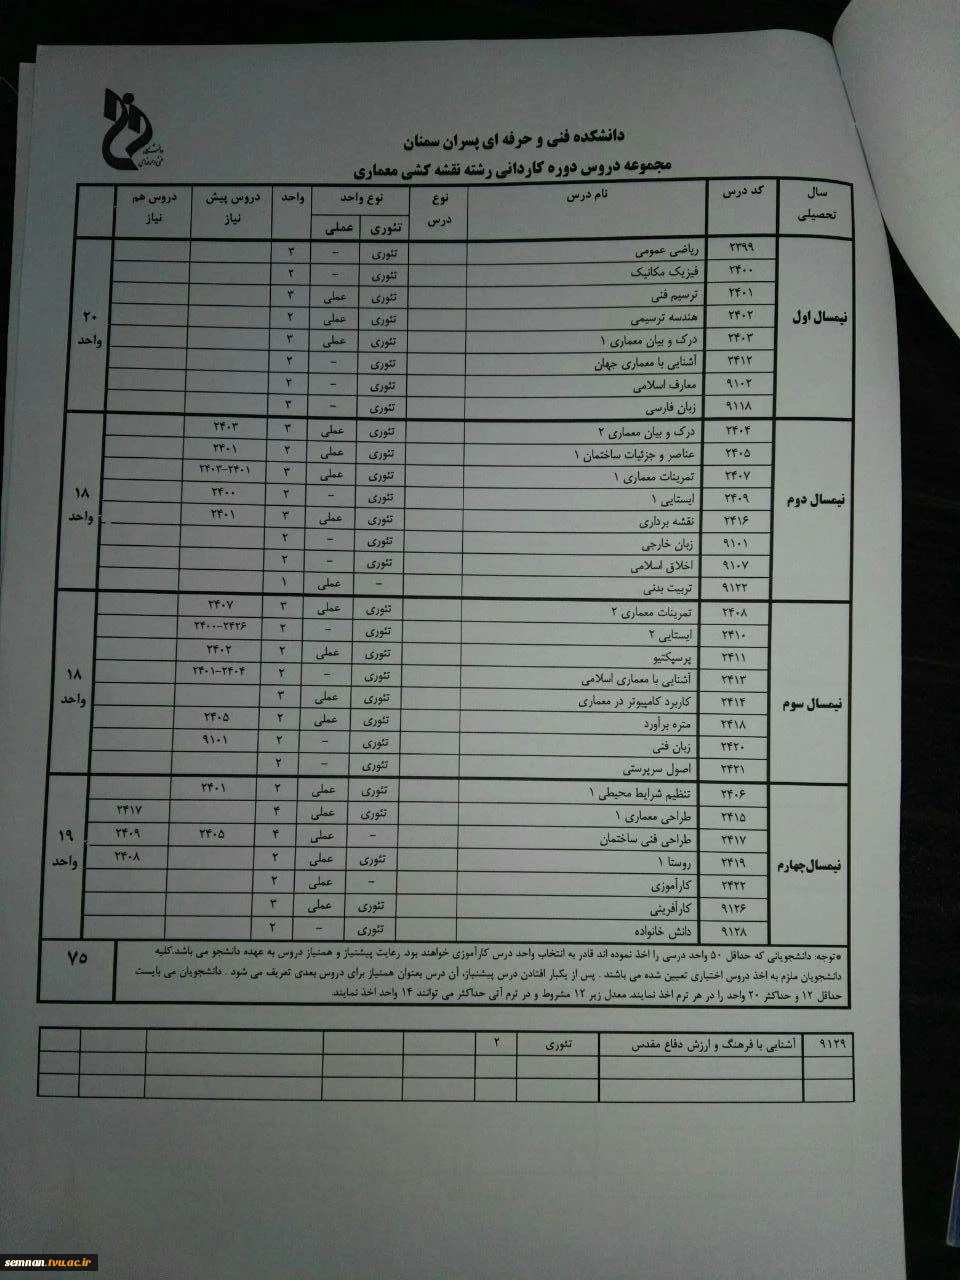 دانشگاه
فنی و حرفه‌ای
دانشکده فنی و حرفه ای پسران سمنان
مجموعه دروس دوره کاردانی رشته نقشه کشی معماری
سال تحصیلی | کد درس | نام درس | نوع درس | نوع واحد | واحد | دروس پیش نیاز | دروس هم نیاز
تئوری | عملی
نیمسال اول
۲۳۹۹ | ریاضی عمومی | تئوری | – | ۳
۲۴۰۰ | فیزیک مکانیک | تئوری | – | ۲
۲۴۰۱ | ترسیم فنی | تئوری | عملی | ۳
۲۴۰۲ | هندسه ترسیمی | تئوری | عملی | ۲
۲۴۰۳ | درک و بیان معماری ۱ | تئوری | عملی | ۳
۲۴۱۲ | آشنایی با معماری جهان | تئوری | – | ۲
۹۱۰۲ | معارف اسلامی | تئوری | – | ۲
۹۱۱۸ | زبان فارسی | تئوری | – | ۳
۲۰ واحد
نیمسال دوم
۲۴۰۴ | درک و بیان معماری ۲ | تئوری | عملی | ۳ | ۲۴۰۳
۲۴۰۵ | عناصر و جزئیات ساختمان ۱ | تئوری | عملی | ۲ | ۲۴۰۱
۲۴۰۷ | تمرینات معماری ۱ | تئوری | عملی | ۳ | ۲۴۰۳-۲۴۰۱
۲۴۰۹ | ایستایی ۱ | تئوری | – | ۲ | ۲۴۰۰
۲۴۱۶ | نقشه برداری | تئوری | عملی | ۳ | ۲۴۰۱
۹۱۰۱ | زبان خارجی | تئوری | – | ۲
۹۱۰۷ | اخلاق اسلامی | تئوری | – | ۲
۹۱۲۲ | تربیت بدنی | – | عملی | ۱
۱۸ واحد
نیمسال سوم
۲۴۰۸ | تمرینات معماری ۲ | تئوری | عملی | ۳ | ۲۴۰۷
۲۴۱۰ | ایستایی ۲ | تئوری | – | ۲ | ۲۴۰۰-۲۴۲۶
۲۴۱۱ | پرسپکتیو | تئوری | عملی | ۲ | ۲۴۰۲
۲۴۱۳ | آشنایی با معماری اسلامی | تئوری | – | ۲ | ۲۴۰۱-۲۴۰۴
۲۴۱۴ | کاربرد کامپیوتر در معماری | تئوری | عملی | ۳
۲۴۱۸ | متره برآورد | تئوری | عملی | ۲ | ۲۴۰۵
۲۴۲۰ | زبان فنی | تئوری | – | ۲ | ۹۱۰۱
۲۴۲۱ | اصول سرپرستی | تئوری | – | ۲
۱۸ واحد
نیمسال چهارم
۲۴۰۶ | تنظیم شرایط محیطی ۱ | تئوری | عملی | ۲ | ۲۴۰۱
۲۴۱۵ | طراحی معماری ۱ | تئوری | عملی | ۴ | ۲۴۱۷
۲۴۱۷ | طراحی فنی ساختمان | – | عملی | ۴ | ۲۴۰۵ | ۲۴۰۹
۲۴۱۹ | روستا ۱ | تئوری | عملی | ۲ | ۲۴۰۸
۲۴۲۲ | کارآموزی | – | عملی | ۲
۹۱۲۶ | کارآفرینی | تئوری | عملی | ۳
۹۱۲۸ | دانش خانواده | تئوری | – | ۲
۱۹ واحد
*توجه: دانشجویانی که حداقل ۵۰ واحد درسی را اخذ نموده اند قادر به انتخاب واحد درس کارآموزی خواهند بود. رعایت پیشنیاز و همنیاز دروس به عهده دانشجو می باشد.کلیه
دانشجویان ملزم به اخذ دروس اختیاری تعیین شده می باشند . پس از یکبار افتادن درس پیشنیاز، آن درس بعنوان همنیاز برای دروس بعدی تعریف می شود . دانشجویان می بایست
حداقل ۱۲ و حداکثر ۲۰ واحد را در هر ترم اخذ نمایند. معدل زیر ۱۲ مشروط و در ترم آتی حداکثر می توانند ۱۴ واحد اخذ نمایند.
۷۵
۹۱۲۹ | آشنایی با فرهنگ و ارزش دفاع مقدس | تئوری | ۲
semnan.tvu.ac.ir